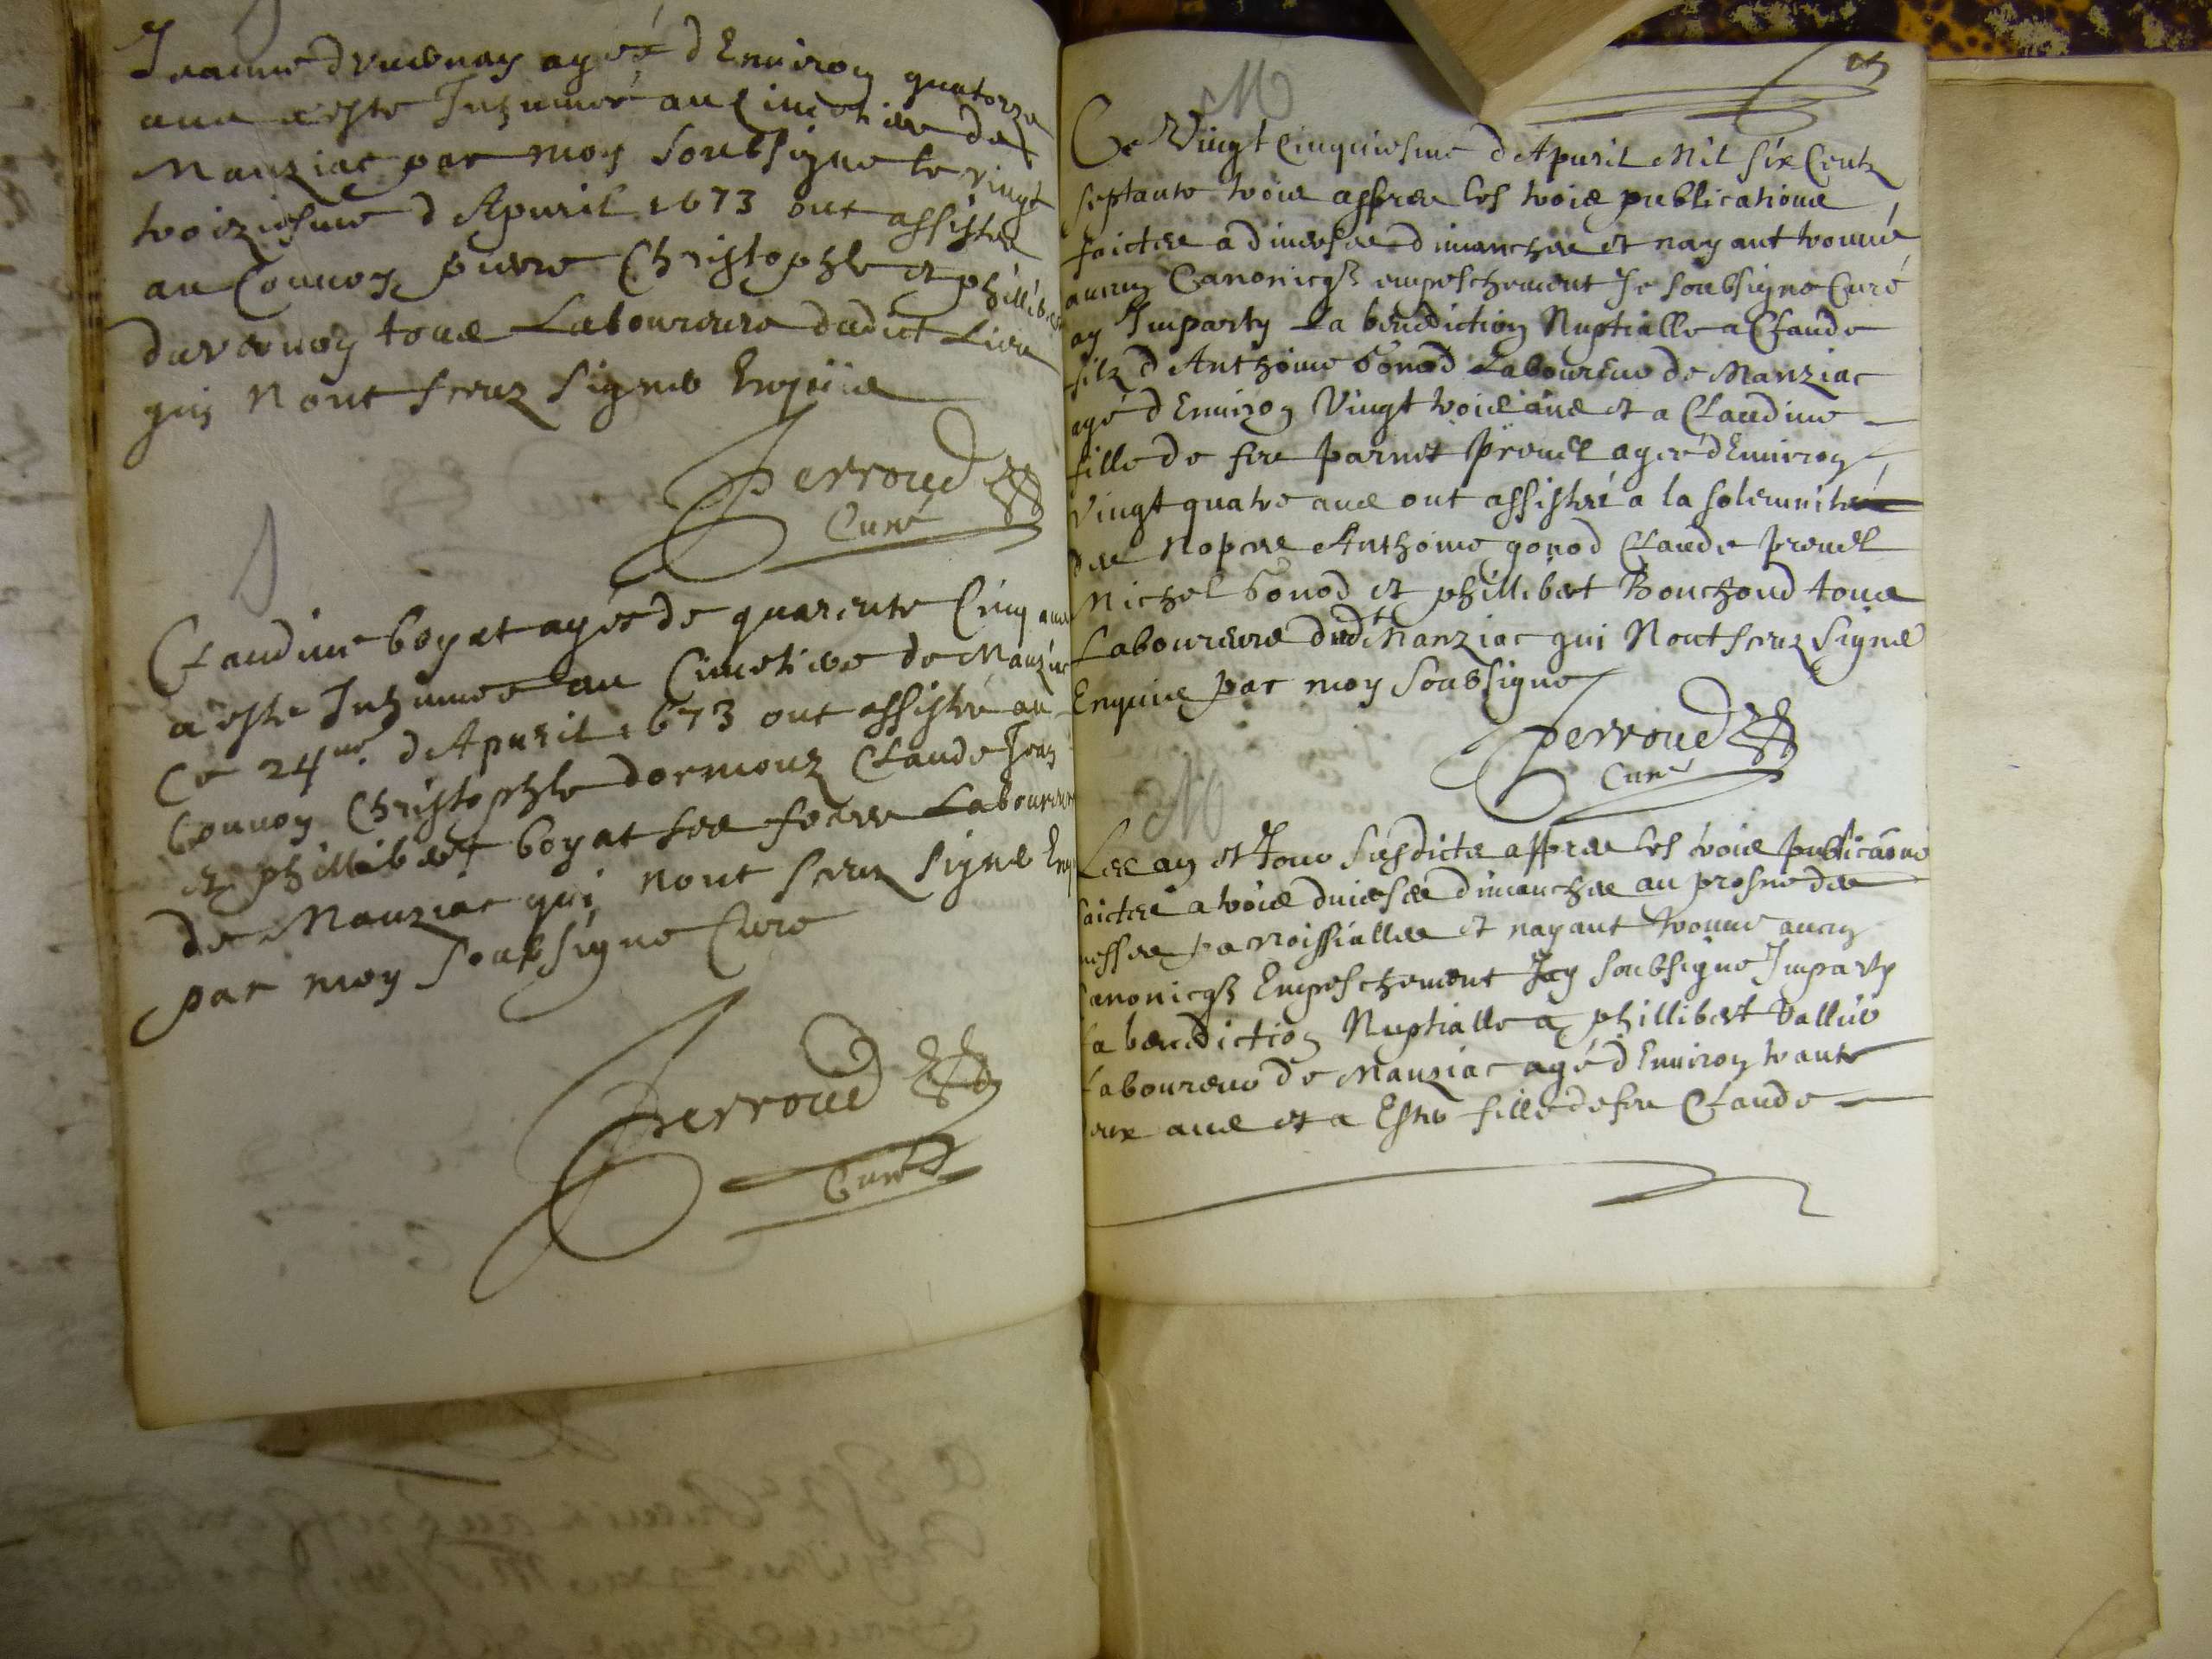 Jeanne duvernay agéé d Environ quatorze
ans a esté Inhumeé au Cimetiere de
Manziac par moy soubsigne le vingt
troiziesme d Apuril 1673 ont assistes
au Conuoy pierre Christophle et phillibert
duvernay tous Laboureurs dudict Lieu
qui N ont sceuz signes Enquis
Perroud
Curé
S
Claudine boyat ageé de quarente Cinq ans
a este Inhumeé au Cimetiere de Manziac
Ce 24me d Apuril 1673 ont assistes au
Conuoy Christophle dormouz Claude Jean
et phillibert boyat ses freres Laboureurs
de Manziac qui nont sceuz signes Enq
par moy soubsigne Cure
Perroud
Curé
M
Ce Vingt Cinquiesme d Apuril Mil six Centz
septante trois appres les trois publications
faictes a diuerses dimanches et nayant trouué
aucun Canonicq empeschement Je soubsigne Curé
ay Imparty La benediction Nuptialle a Claude
filz d Anthoine Gonod Laboureur de Manziac
agé d Enuiron Vingt trois ans et a Claudine
fille de feu parnet preuel ageé d Enuiron
Vingt quatre ans ont assistes a la solemnité
des nopces Anthoine gonod Claude preuel
Michel Gonod et phillibert Bouchoud tous
Laboureurs dudt Manziac qui Nont sceuz signe
Enquis par moy soubsigne
Perroud
Curé
M
Les an et Jour susdicts appres les trois publicaons
faictes a trois diuerses dimanches au prosne des
messes paroissialles et nayant trouue aucun
Canonicq Empeschement Jay soubsigne Imparty
La benediction Nuptialle a phillibert Vallier
Laboureur de Manziac agé d Enuiron trante
eux ans et a fille de feu Claude